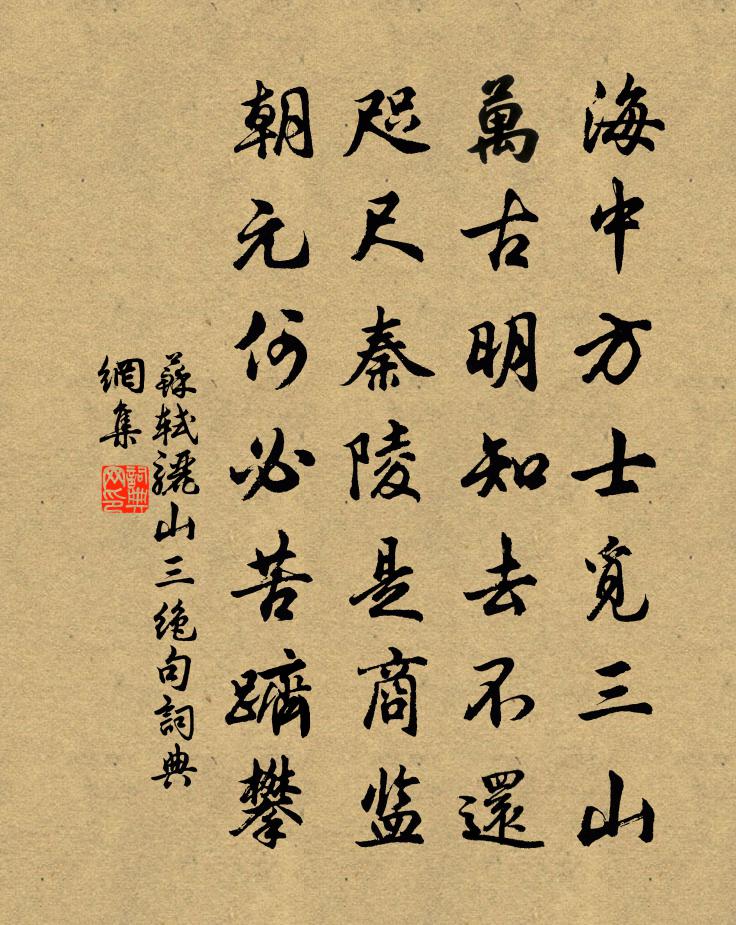 海中方士覓三山
萬古明知去不還
咫尺秦陵是商監
朝元何必苦躋攀
蘇軾驪山三絶句詞典
網集
詞典
网印